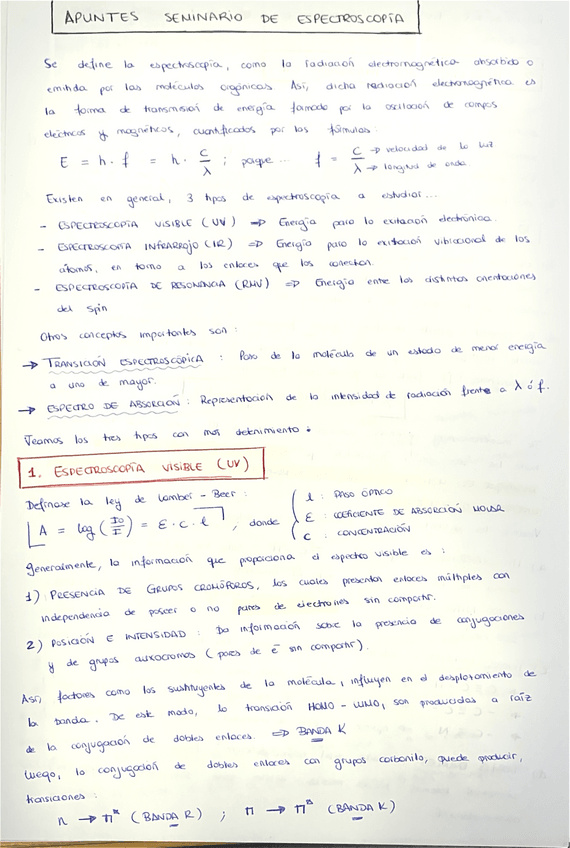 APUNTES SEMINARIO DE ESPECTROSCOPÍA
Se define la espectroscopía, como la radiación electromagnética absorbida o
emitida por las moléculas orgánicas. Así, dicha radiación electromagnética es
la forma de transmisión de energía formada por la oscilación de campos
eléctricos y magnéticos, cuantificados por las fórmulas:
E = h · f = h · C/λ ; porque... f = C/λ → velocidad de la luz → longitud de onda
Existen en general, 3 tipos de espectroscopía a estudiar...
- ESPECTROSCOPÍA VISIBLE (UV) ⇒ Energía para la exitación electrónica.
- ESPECTROSCOPÍA INFRARROJO (IR) ⇒ Energía para la exitación vibracional de los
átomos, en torno a los enlaces que los conectan.
- ESPECTROSCOPÍA DE RESONANCIA (RMN) ⇒ Energía entre las distintas orientaciones
del spin
Otros conceptos importantes son:
→ TRANSICIÓN ESPECTROSCÓPICA : Paso de la molécula de un estado de menor energía
a uno de mayor.
→ ESPECTRO DE ABSORCIÓN : Representación de la intensidad de radiación frente a λ ó f.
Veamos los tres tipos con más detenimiento:
1. ESPECTROSCOPÍA VISIBLE (UV)
Defínase la ley de Lamber - Beer:
A = log (I₀/I) = ε · c · l , donde
l : PASO ÓPTICO
ε : COEFICIENTE DE ABSORCIÓN MOLAR
C : CONCENTRACIÓN
Generalmente, la información que proporciona el espectro visible es:
1) PRESENCIA DE GRUPOS CROMÓFOROS, los cuales presentan enlaces múltiples con
independencia de poseer o no pares de electrones sin compartir.
2) POSICIÓN E INTENSIDAD : Da información sobre la presencia de conjugaciones
y de grupos auxocromos (pares de e⁻ sin compartir).
Así, factores como los sustituyentes de la molécula, influyen en el desplazamiento de
la banda. De este modo, la transición HOMO - LUMO, son producidas a raíz
de la conjugación de dobles enlaces. ⇒ BANDA K
Luego, la conjugación de dobles enlaces con grupos carbonilo, puede producir,
transiciones:
n → π* (BANDA R) ; π → π* (BANDA K)